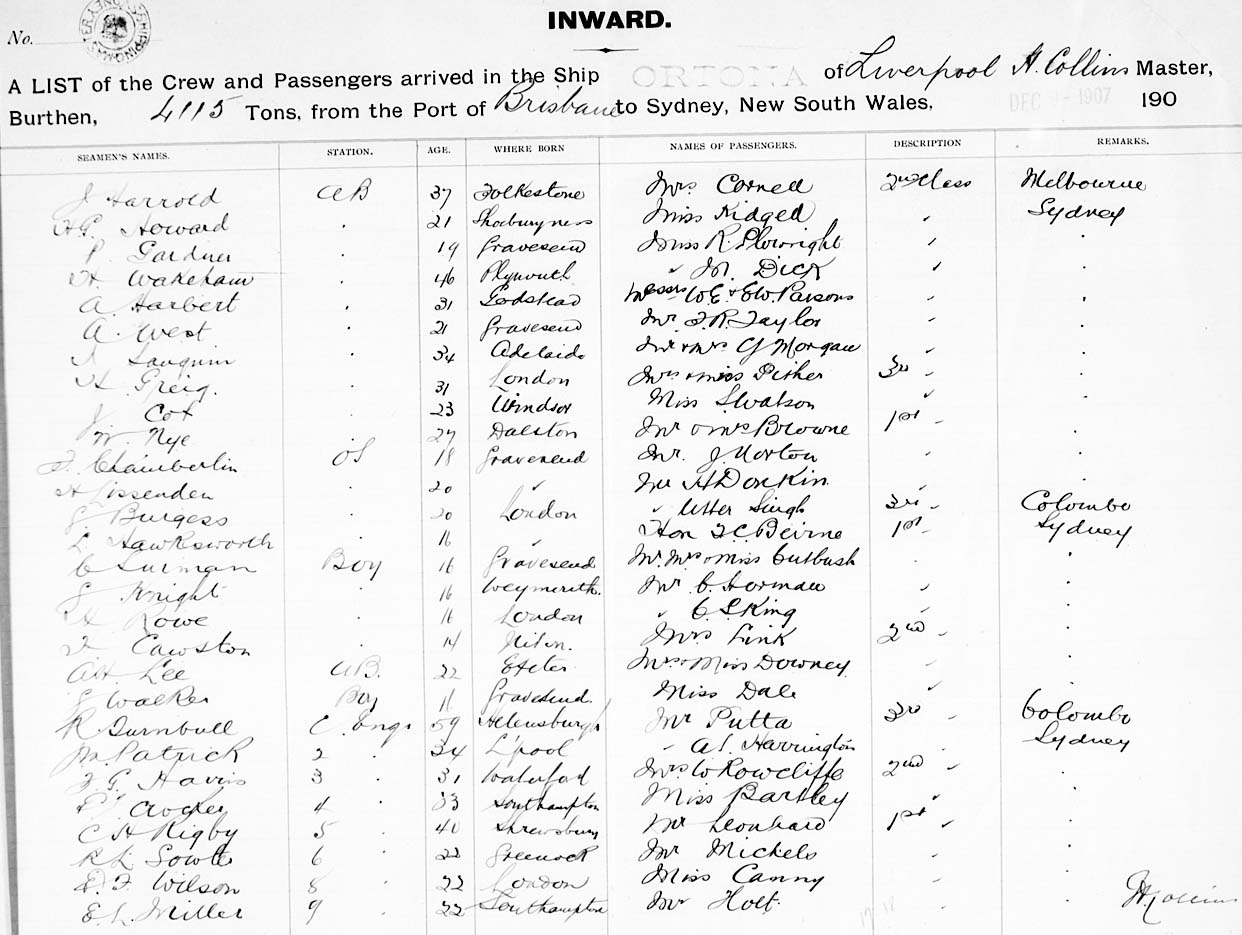 INWARD.
No.
A LIST of the Crew and Passengers arrived in the Ship ORTONA of Liverpool H. Collins Master,
Burthen, 4115 Tons, from the Port of Brisbane to Sydney, New South Wales, DEC 1907 190
SEAMEN'S NAMES. STATION. AGE. WHERE BORN NAMES OF PASSENGERS. DESCRIPTION REMARKS.
J Harrold AB 37 Folkestone Mrs Cornell 2nd Class Melbourne
H.G. Howard " 21 Shoeburyness Miss Kidged " Sydney
P. Gardner " 19 Gravesend Miss R. Plowright " "
H. Wakeham " 46 Plymouth " M. Dick " "
A. Harbert " 31 Godstead Messrs W.E. & E.W. Parsons " "
A. West " 21 Gravesend Mr F.R. Taylor " "
Sanguin " 34 Adelaide Mr & Mrs G Morgan " "
H Greig. " 31 London Mrs & Miss Pither 3rd " "
J Cox " 23 Windsor Miss S. Watson " "
W. Nye " 27 Dalston Mr & Mrs Browne 1st " "
F. Chamberlin OS 18 Gravesend Mr. J. Norton " "
H Lissenden " 20 " Mr H Donkin " "
G Burgess " 20 London " Utter Singh 3rd " Colombo
L Hawkesworth " 16 " Hon T.C. Beirne 1st " Sydney
C Surman Boy 16 Gravesend Mr. Mrs & Miss Cutbush " "
G Knight " 16 Weymouth. Mr C. Horman " "
H Rowe " 16 London " C S King " "
F Cawston " 14 Mrs Fink 2nd " "
A.H. Lee A.B. 22 Exeter Mrs & Miss Downey " "
G Walker Boy 16 Gravesend. Miss Dale " "
R Turnbull C. Engr 59 Helensburgh Mr Putta 3rd " Colombo
M Patrick 2 " 34 L'pool " A.S. Harrington Sydney
F. G. Havis 3 " 31 Waterford Mrs W Rowcliffe 2nd " "
Crocker 4 " 33 Southampton Miss Bartley " "
C H Rigby 5 " 40 Shrewsbury Mr Leonhard 1st " "
R L Sowter 6 " 22 Greenock Mr Mickels " "
D. F. Wilson 8 " 22 London Miss Canny " "
E. L. Miller 9 " 22 Southampton Mr Holt " " H Collins